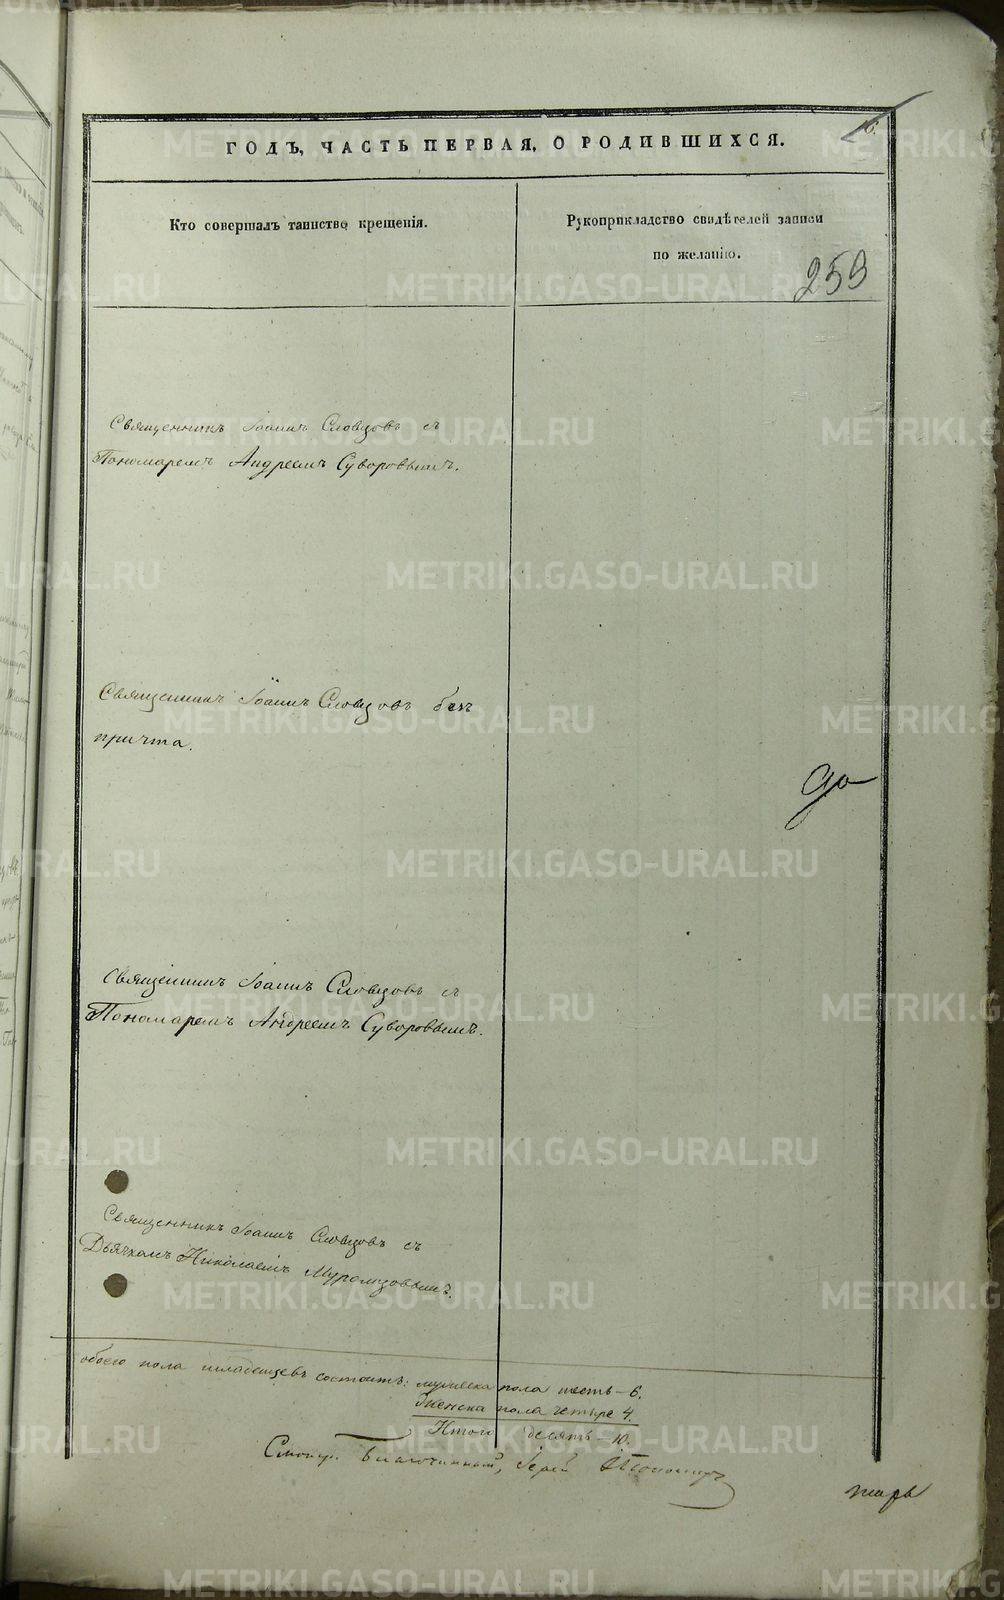 ГОДЪ, ЧАСТЬ ПЕРВАЯ, О РОДИВШИХСЯ.
Кто совершалъ таинство крещенія.
Рукоприкладство свидѣтелей записи
по желанію.
259
Священникъ Іоаннъ Словцовъ съ
Пономаремъ Андреемъ Суворовымъ.
Священникъ Іоаннъ Словцовъ безъ
причта.
Священникъ Іоаннъ Словцовъ съ
Пономаремъ Андреемъ Суворовымъ.
Священникъ Іоаннъ Словцовъ съ
Дьячкомъ Николаемъ Муромцовымъ.
обоего пола младенцевъ состоитъ: мужеска пола шесть – 6.
женска пола четыре 4.
Итого десять – 10.
Благочинный, Іерей
METRIKI.GASO-URAL.RU